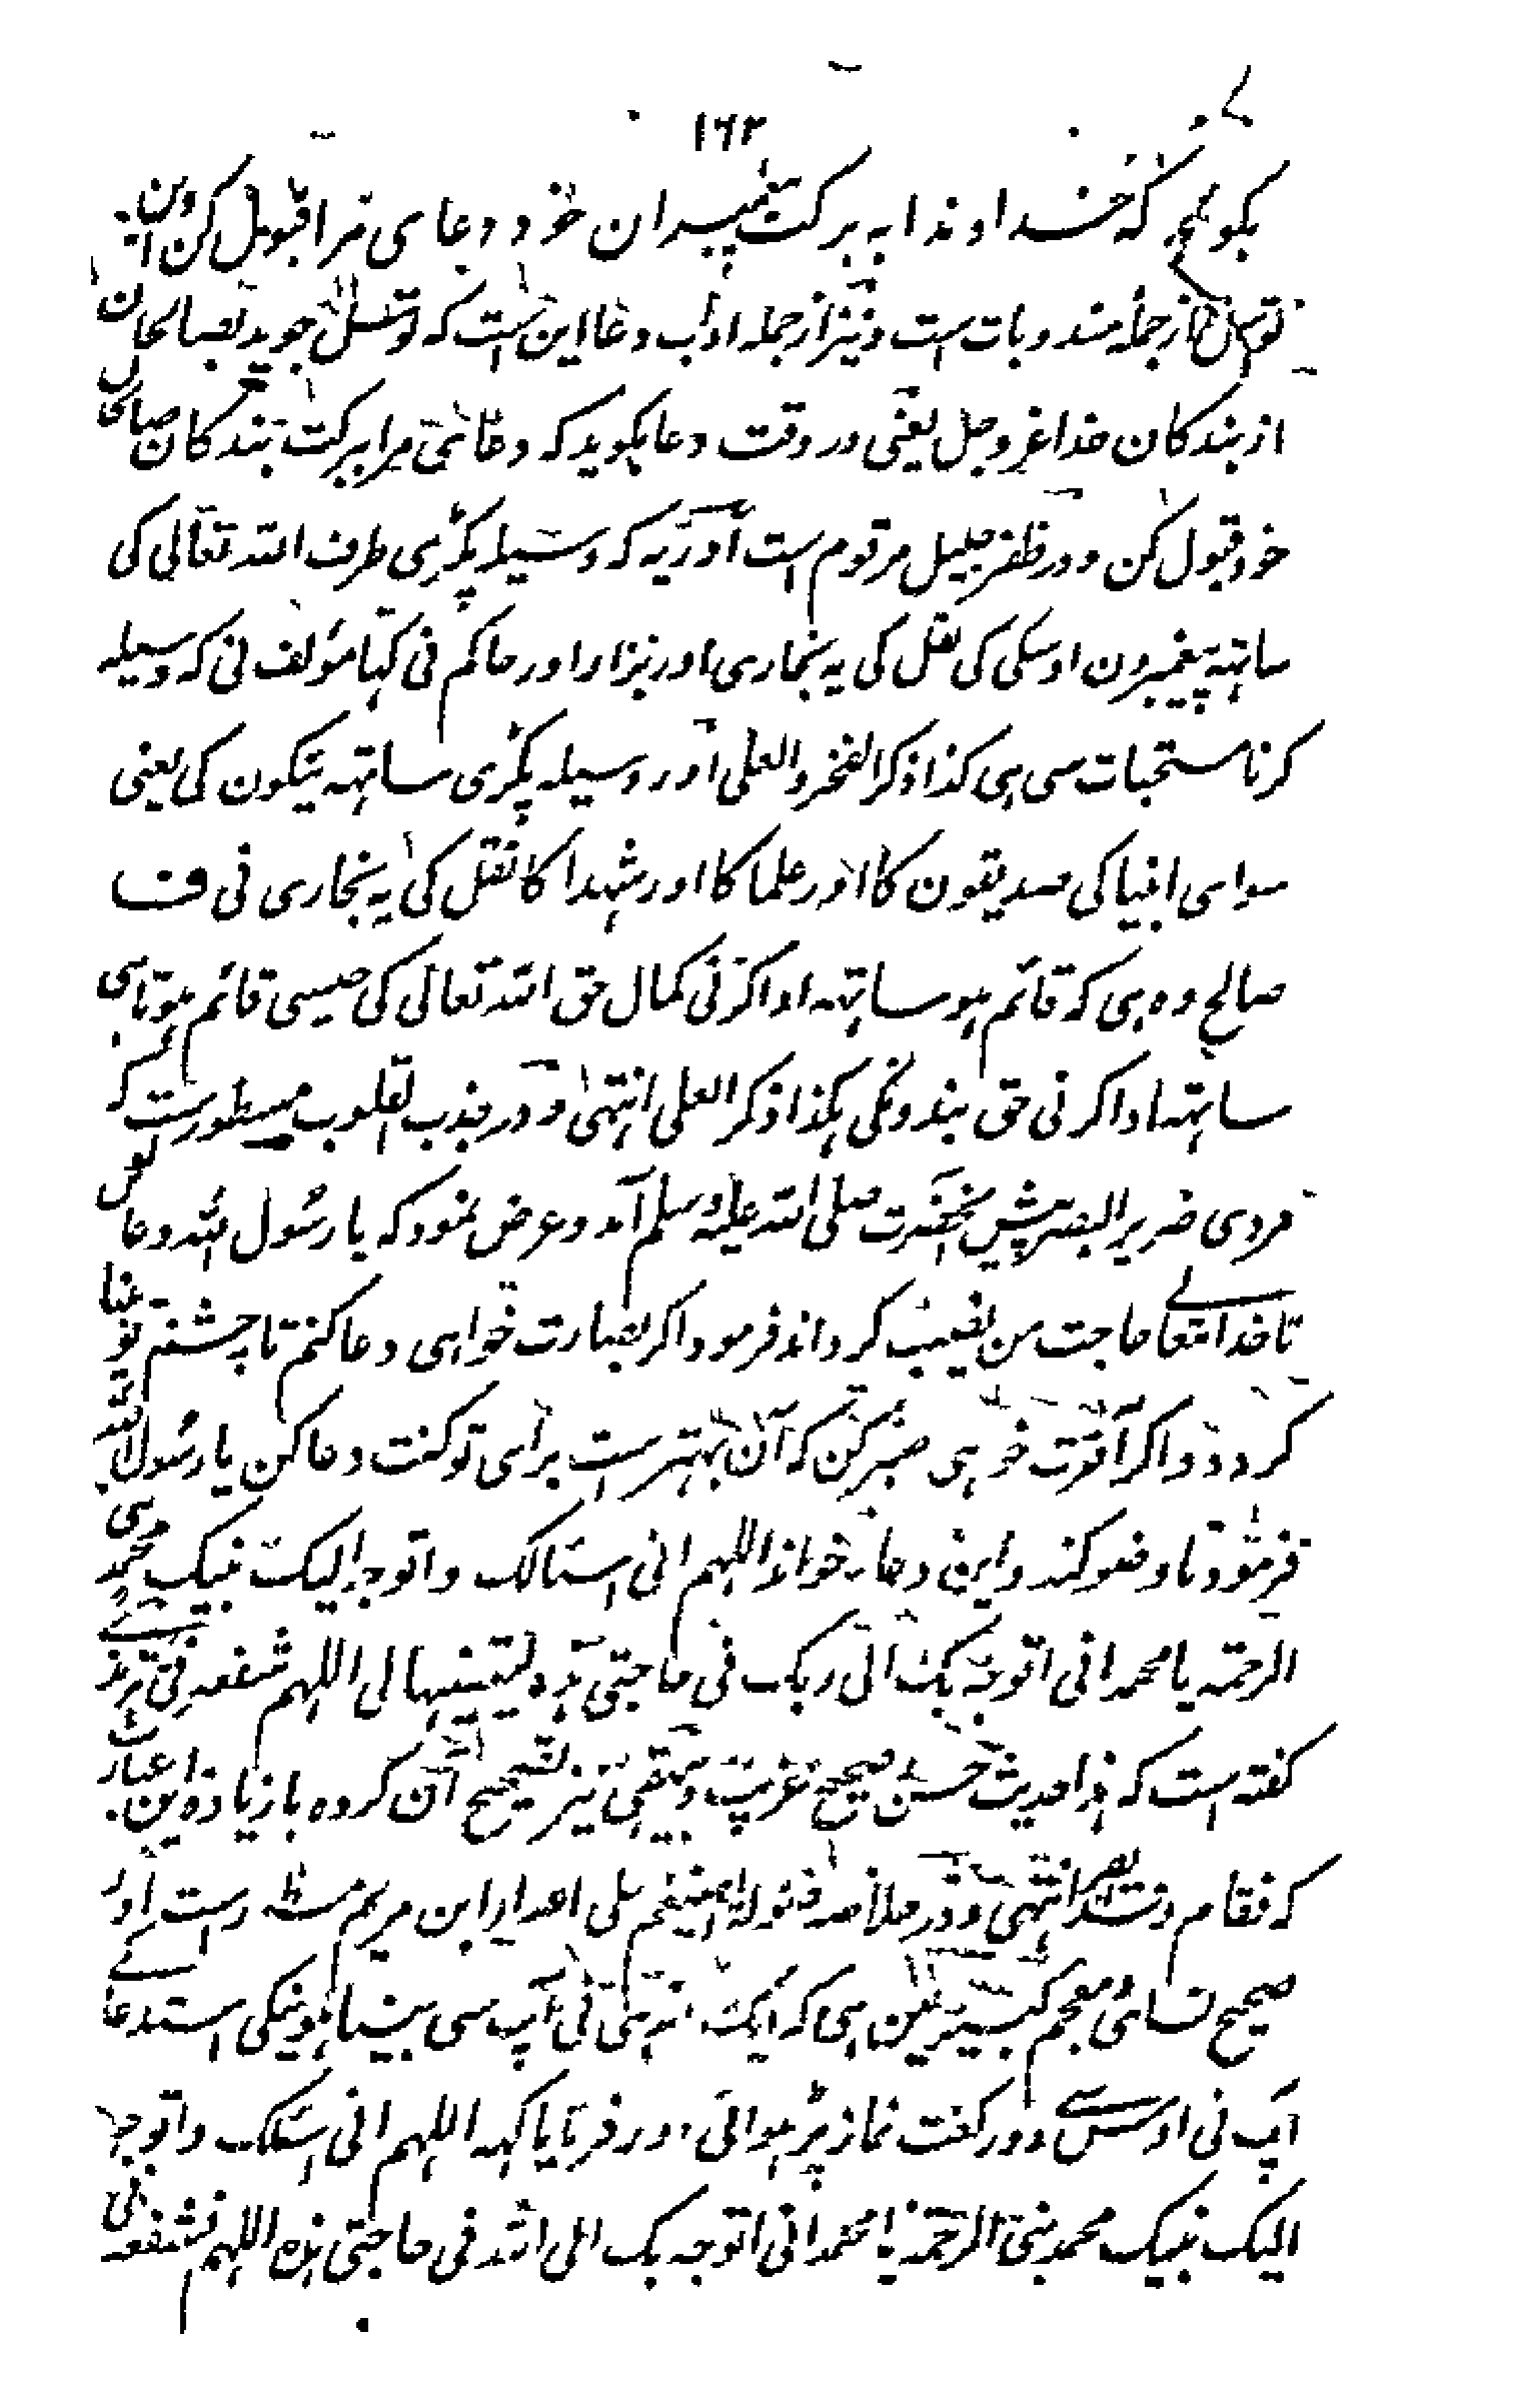 ۱۶۲
بکوید که خداوندا به برکت پیغمبران خود دعای مرا قبول کن و این
توسل از جملهٔ مندوبات است و نیز از جمله اداب دعا این است که توسل جوید بصالحان
از بندکان خدا عز و جل یعنی در وقت دعا بکوید که دعائی مرا ببرکت بندکان صالحان
خود قبول کن و در ظفر جلیل مرقوم است اور یه که وسیله پکڑی طرف الله تعالی کی
ساتهه پیغمبرون اوسکی کی نقل کی یه بخاری اور بزار اور حاکم نی کہا مؤلف نی که وسیله
کرنا مستحبات سی هی کذا ذکر الفخر والعلی اور وسیله پکڑی ساتهه نیکون کی یعنی
سوای انبیا کی صدیقون کا اور علما کا اور شهدا کا نقل کی یه بخاری نی ف
صالح وه هی که قائم هو ساتهه ادا کرنی کمال حق الله تعالی کی جیسی قائم هوتا هی
ساتهه ادا کرنی حق بندونکی هکذا ذکر العلی انتهی و در جذب القلوب مسطورست که
مردی ضریر البصر پیش آنحضرت صلی الله علیه وسلم آمد و عرض نمود که یا رسول الله دعا کن
تا خدایتعالی حاجت من نصیب کرداند فرمود اکر بصارت خواهی دعا کنم تا چشم تو بینا
کردد و اکر آخرت خواهی صبر کن که آن بهتر است برای تو کفت دعا کن یا رسول الله
فرمود تا وضو کند و این دعا بخواند اللهم انی اسئالک و اتوجه الیک بنبیک محمد نبی
الرحمة یا محمد انی اتوجه بک الی ربک فی حاجتی هذه لیتقضیها لی اللهم شفعه فی ترمذی
کفته است که هذا حدیث حسن صحیح غریب و بیهقی نیز تصحیح آن کرده با زیاده این عبارت
که فقام و قد ابصر انتهی و در خلاصه
صحیح نسائی و معجم کبیر مین هی که ایک اندهی نی آپ سی بینا هونیکی استدعا کی
آپ نی اوس سے دو رکعت نماز پڑهوائی اور فرمایا کهه اللهم انی اسئلک و اتوجه
الیک بنبیک محمد نبی الرحمة یا محمد انی اتوجه بک الی الله فی حاجتی هذه اللهم فشفعه فی